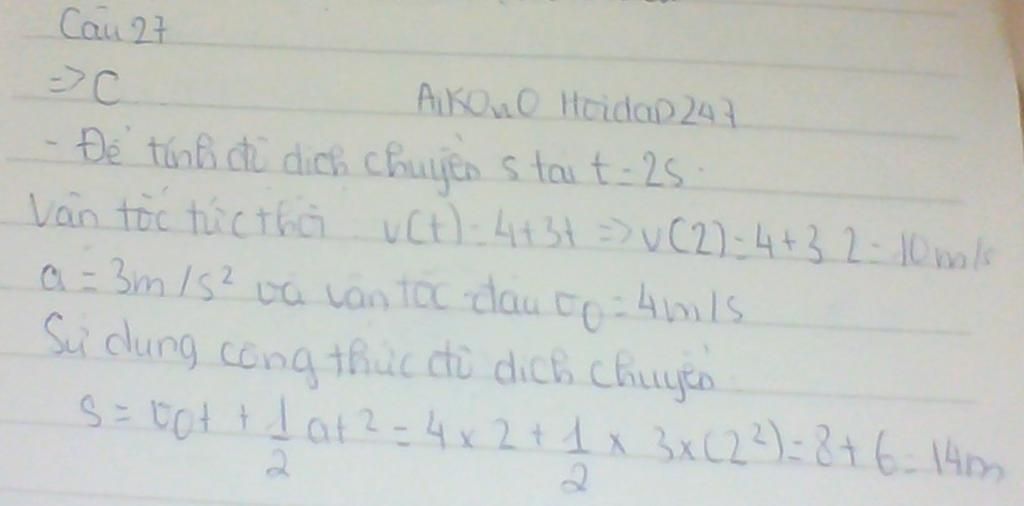 Câu 27
=> C
AiKOnO Hoidap247
- Để tính độ dịch chuyển s tại t = 2s.
Vận tốc tức thời v(t) = 4+3t => v(2) = 4+3 2 = 10m/s
a = 3m/s² và vận tốc đầu v0 = 4m/s
Sử dụng công thức độ dịch chuyển
s = v0t + 1/2 at² = 4 x 2 + 1/2 x 3x(2²) = 8 + 6 = 14m